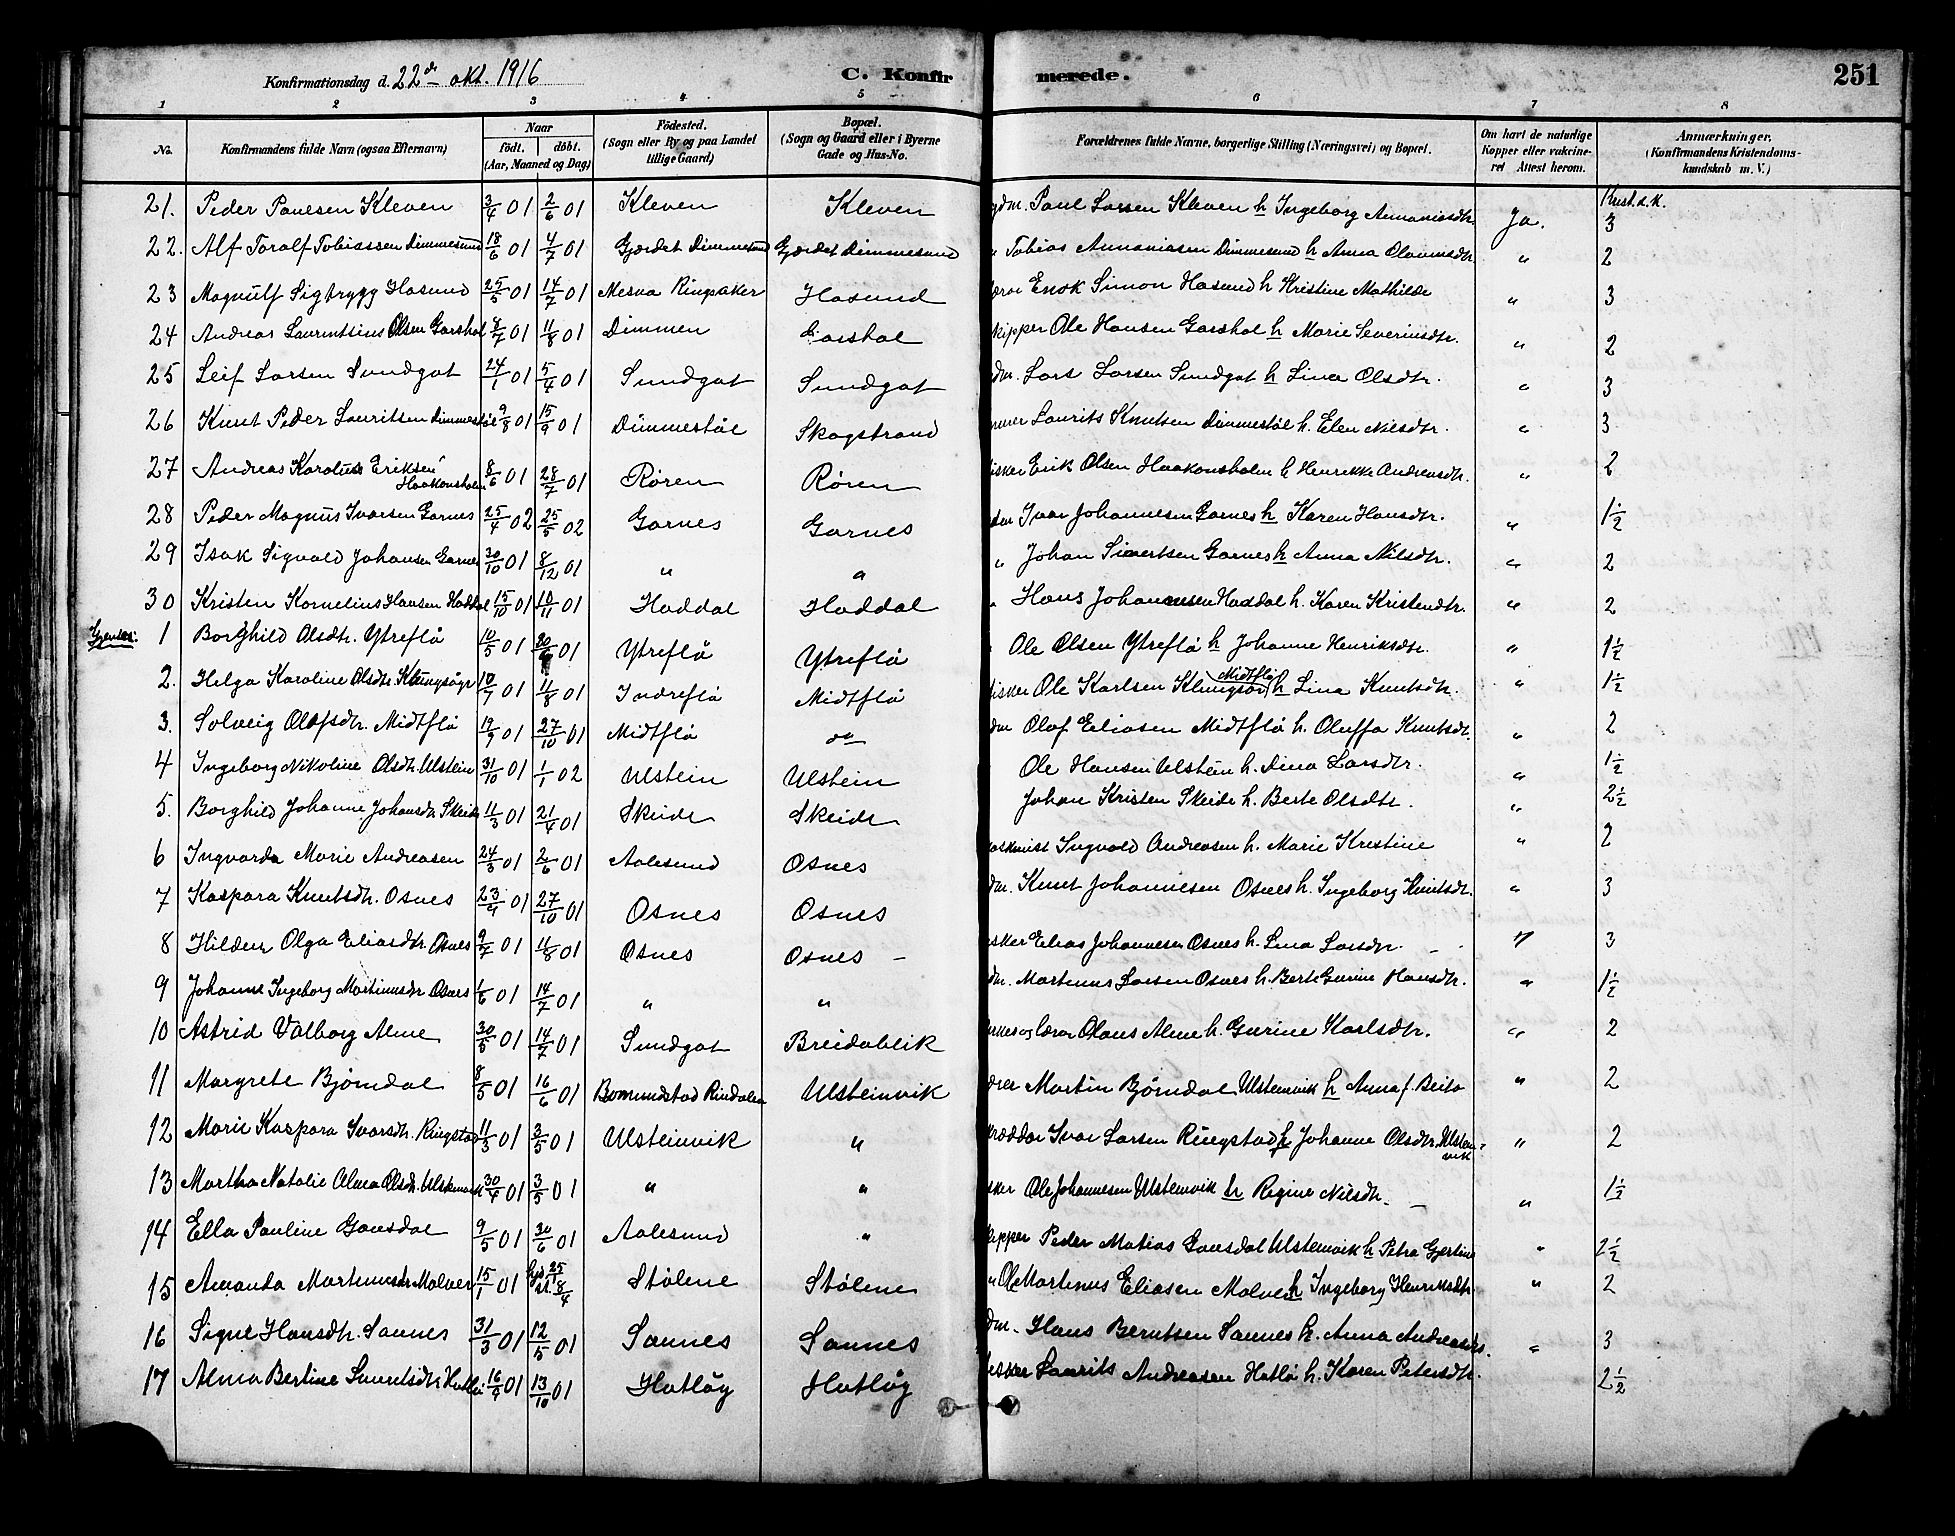 Konfirmationsdag d. 22de okt. 1916 C. Konfir merede. 251
1 2 3 4 5 6 7 8
No. Konfirmandens fulde Navn (ogsaa Efternavn) Naar født. døbt. (Aar, Maaned og Dag) Fødested. (Sogn eller By og paa Landet tillige Gaard) Bopæl. (Sogn og Gaard eller i Byerne Gade og Hus-No. Forældrenes fulde Navne, borgerlige Stilling (Næringsvei) og Bopæl. Om havt de naturlige Kopper eller vakcineret Attest herom. Anmærkninger, (Konfirmandens Kristendomskundskab m. V.)
Krist.d.k.
21. Peder Paulsen Kleven 3/4 01 2/6 01 Kleven Kleven gdm. Paul Larsen Kleven h Ingeborg Annaniasdtr. Ja. 3
22. Alf Toralf Tobiassen Dimmesund 18/6 01 4/7 01 Gjerdet Dimmesund Gjerdet Dimmesund " Tobias Annaniasen Dimmesund h Anna Olavmsdtr. " 2
23 Magnulf Sigtrygg Hasund 25/5 01 14/7 01 Mesna Ringsaker Hasund Enok Simon Hasund h Kristine Mathilde " 3
24 Andreas Laurentsius Olsen Garshol 4/7 01 11/8 01 Dimmen Garshol kipper Ole Hansen Garshol h Marie Severinsdtr. " 2
25 Leif Larsen Sundgot 24/1 01 5/4 01 Sundgot Sundgot dm. Lars Larsen Sundgot h Lina Olsdtr. " 3
26 Knut Peder Lauritsen Dimmestøl 9/8 01 15/9 01 Dimmestøl Skogstrand Laurits Knutsen Dimmestøl h. Elen Nilsdtr. " 3
27 Andreas Karolius Eriksen Haakonsholm 8/6 01 28/7 01 Røren Røren isker Erik Olsen Haakonsholm h Henrikke Andreasdtr. " 2
28 Peder Magnus Ivarsen Garnes 25/4 02 25/5 02 Garnes Garnes dm Ivar Johannesen Garnes h Karen Hansdtr. " 1½
29 Isak Sigvald Johansen Garnes 30/10 01 8/12 01 " " " Johan Sivertsen Garnes h Anna Nilsdtr. " 2
30 Kristen Kornelius Hansen Haddal 15/10 01 10/11 01 Haddal Haddal " Hans Johannesen Haddal h. Karen Kristendtr. " 2
1 Borghild Olsdtr. Ytreflø 10/5 01 30/6 01 Ytreflø Ytreflø Ole Olsen Ytreflø h Johanne Henriksdtr. " 1½
2. Helga Karoline Olsdtr. Klungsøyr 10/7 01 11/8 01 Indreflø Midtflø isker Ole Karlsen Klungsøyr Midtflø h Lina Knutsdtr. " 1½
3. Solveig Olafsdtr. Midtflø 19/9 01 27/10 01 Midtflø do dm Olaf Eliasen Midtflø h. Oluffa Knutsdtr. " 2
4 Ingeborg Nikoline Olsdtr. Ulstein 31/10 01 1/1 02 Ulstein Ulstein Ole Hansen Ulstein h. Dina Larsdtr. " 1½
5. Borghild Johanne Johansdtr. Skeide 11/3 01 21/4 01 Skeide Skeide Johan Kristen Skeide h. Berte Olsdtr. " 2½
6 Ingvarda Marie Andreasen 24/3 01 2/6 01 Aalesund Osnes Ingvald Andreasen h. Marie Kristine " 2
7 Kaspara Knutsdtr. Osnes 23/9 01 27/10 01 Osnes Osnes dm. Knut Johannesen Osnes h. Ingeborg Knutsdtr. " 3
8 Hildur Olga Eliasdtr. Osnes 9/7 01 11/8 01 Osnes Osnes – isker Elias Johannesen Osnes h. Lina Larsdtr. – " 3
9 Johanne Ingeborg Martinusdtr Osnes 1/6 01 14/7 01 " " dm. Martinus Larsen Osnes h. Berte Gurine Hansdtr. " 1½
10 Astrid Valborg Alme 30/5 01 14/7 01 Sundgot Breidablik lærer Olaus Alme h. Gurine Karlsdtr. " 2
11 Margrete Bjørndal 8/5 01 16/6 01 Bomundstad Rindalen Ulsteinvik Martin Bjørndal Ulsteinvik h Anna f. Beito " 2
12 Marie Kaspara Ivarsdtr. Ringstad 11/3 01 3/5 01 Ulsteinvik " kræddar Ivar Larsen Ringstad h Johanne Olsdtr. Ulsteinvik " 2
13 Martha Natalie Alma Olsdtr. Ulsteinvik 30/4 01 3/5 01 " " isker Ole Johannesen Ulsteinvik h Regine Nilsdtr. – " 1½
14 Ella Pauline Gausdal 9/5 01 30/6 01 Aalesund " kipper Peder Matias Gausdal Ulsteinvik h Petra Gjertine " 2½
15 Amanda Martinusdtr Malvær 15/1 01 25/1 8/4 Stølene Stølene " Ole Martinus Eliasen Malvær h Ingeborg Henriksdtr " 2
16 Signe Hansdtr. Saunes 31/3 01 12/5 01 Saunes Saunes dm. Hans Berntsen Saunes h. Anna Andreasdtr. " 3
17 Alma Bertine Lauritsdtr. Hatlø 16/9 01 13/10 01 Hatløy Hatløy isker Laurits Andreasen Hatlø h. Karen Petersdtr. 2½